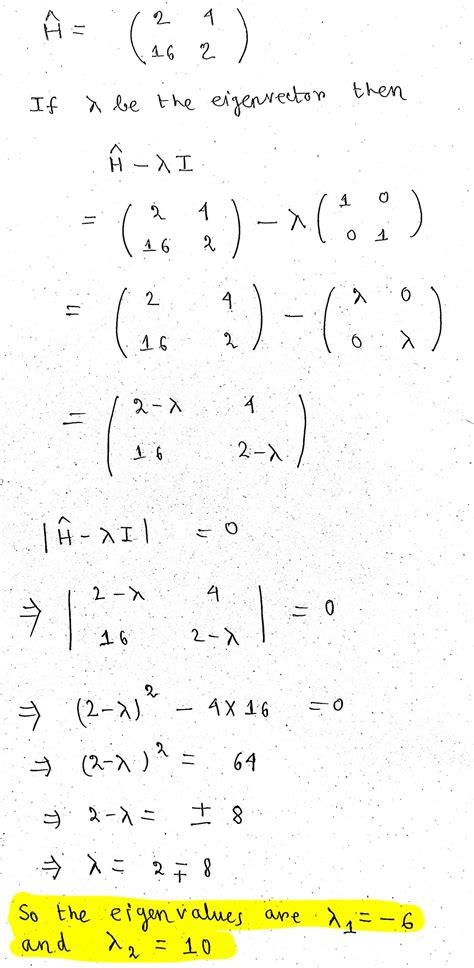 Ĥ = ( 2 4
16 2 )
If λ be the eigenvector then
Ĥ - λ I
= ( 2 4
16 2 ) - λ ( 1 0
0 1 )
= ( 2 4
16 2 ) - ( λ 0
0 λ )
= ( 2-λ 4
16 2-λ )
|Ĥ - λI| = 0
⇒ | 2-λ 4
16 2-λ | = 0
⇒ (2-λ)² - 4×16 = 0
⇒ (2-λ)² = 64
⇒ 2-λ = ± 8
⇒ λ = 2 ∓ 8
So the eigenvalues are λ₁ = -6
and λ₂ = 10